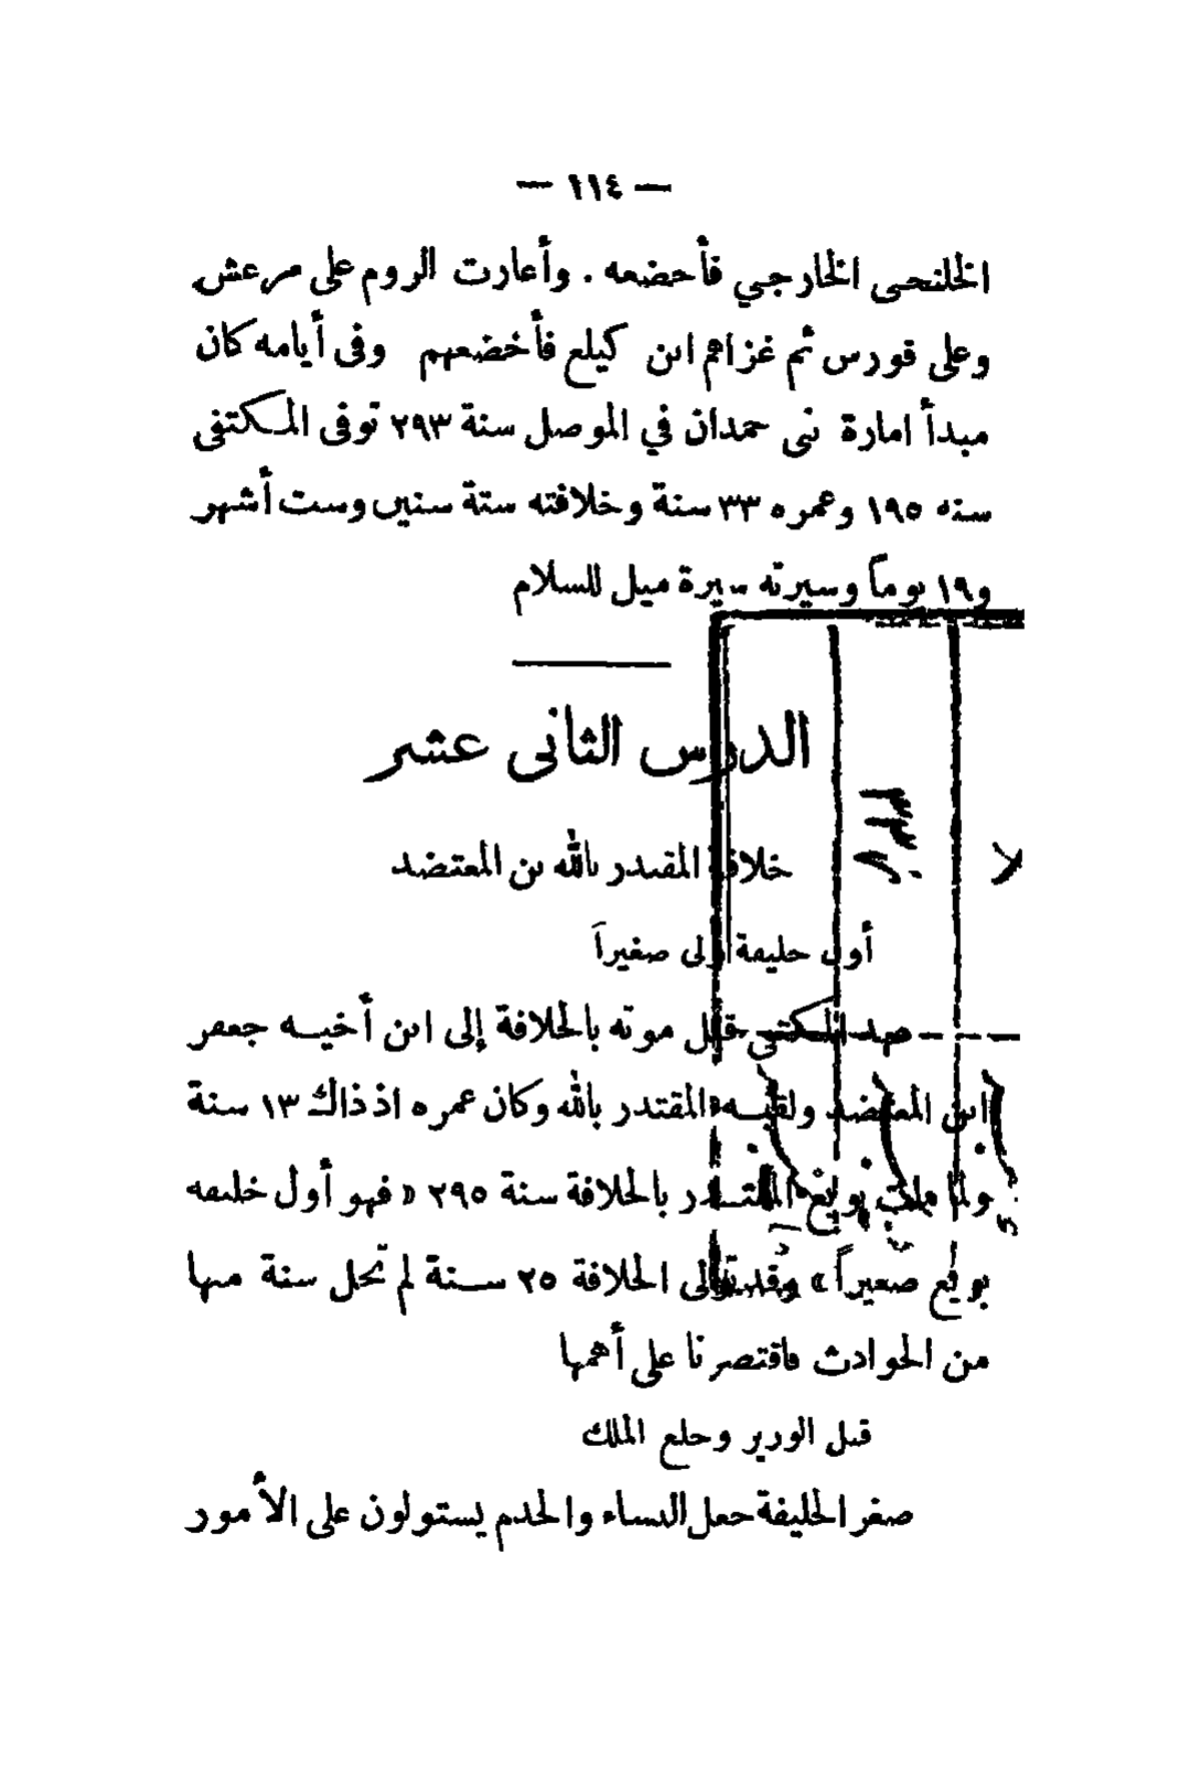 — ١١٤ —
الخلنحى الخارجي فأحضعه . وأعارت الروم على مرعش
وعلى قورس ثم غزاهم ابن كيلع فأخضعهم وفى أيامه كان
مبدأ امارة نى حمدان في الموصل سنة ٢٩٣ توفى المكتفى
سنه ١٩٥ وعمره ٣٣ سنة وخلافته ستة سنين وست أشهر
و١٩ يوماً وسيرته سيرة ميل للسلام
الدرس الثانى عشر
خلافة المقتدر بالله بن المعتضد
أول خليفة ولى صغيراً
المكتفى قبل موته بالخلافة إلى ابن أخيه جعفر
ابن المعتضد ولقبه المقتدر بالله وكان عمره اذ ذاك ١٣ سنة
ولما بويع المقتدر بالخلافة سنة ٢٩٥ « فهو أول خليفه
بويع صغيراً » وقد تولى الخلافة ٢٥ سنة لم تحل سنة منها
من الحوادث فاقتصرنا على أهمها
قتل الوزير وخلع الملك
صغر الخليفة جعل النساء والخدم يستولون على الأمور